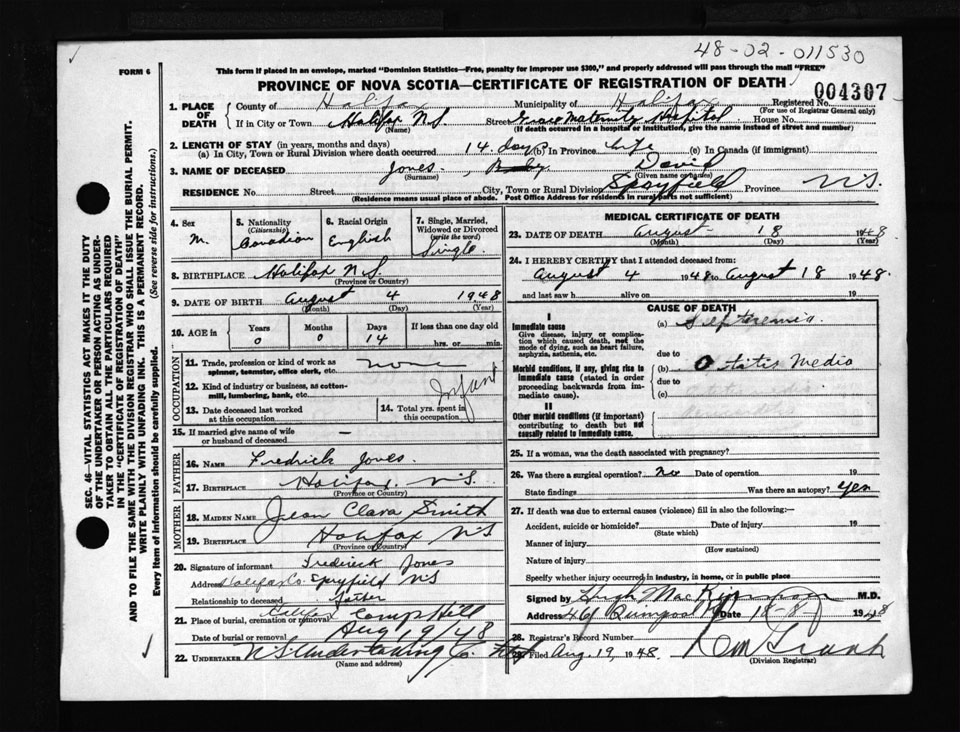 48-02-011530
FORM 6
This form if placed in an envelope, marked "Dominion Statistics—Free, penalty for improper use $300," and properly addressed will pass through the mail "FREE"
PROVINCE OF NOVA SCOTIA—CERTIFICATE OF REGISTRATION OF DEATH
004307
1. PLACE OF DEATH
County of Halifax Municipality of Halifax Registered No.
(For use of Registrar General only)
If in City or Town Halifax N.S. Street Grace Maternity Hospital House No.
(Name) (If death occurred in a hospital or institution, give the name instead of street and number)
2. LENGTH OF STAY (in years, months and days)
(a) In City, Town or Rural Division where death occurred 14 days (b) In Province Life (c) In Canada (if immigrant)
3. NAME OF DECEASED Jones, Baby David
(Surname) (Given name or names)
RESIDENCE No. Street City, Town or Rural Division Spryfield Province N.S.
(Residence means usual place of abode. Post Office Address for residents in rural parts not sufficient)
4. Sex
M.
5. Nationality
(Citizenship)
Canadian
6. Racial Origin
English
7. Single, Married, Widowed or Divorced
(write the word)
Single
8. BIRTHPLACE Halifax N.S.
(Province or Country)
9. DATE OF BIRTH August 4 1948
(Month) (Day) (Year)
10. AGE in
Years Months Days If less than one day old
0 0 14 hrs. or min.
OCCUPATION
11. Trade, profession or kind of work as spinner, teamster, office clerk, etc. none
12. Kind of industry or business, as cotton-mill, lumbering, bank, etc. Infant
13. Date deceased last worked at this occupation
14. Total yrs. spent in this occupation
15. If married give name of wife or husband of deceased —
FATHER
16. NAME Fredrick Jones.
17. BIRTHPLACE Halifax. N.S.
(Province or Country)
MOTHER
18. MAIDEN NAME Jean Clara Smith
19. BIRTHPLACE Halifax N.S
(Province or Country)
20. Signature of informant Frederick Jones
Address Halifax Co. Spryfield N.S
Relationship to deceased Father
21. Place of burial, cremation or removal Camp Hill
Date of burial or removal Aug 19/48
22. UNDERTAKER N.S. Undertaking Co.
(Name and address)
MEDICAL CERTIFICATE OF DEATH
23. DATE OF DEATH August 18 1948
(Month) (Day) (Year)
24. I HEREBY CERTIFY that I attended deceased from:
August 4 1948 to August 18 1948.
and last saw h alive on 19
CAUSE OF DEATH
I
Immediate cause
Give disease, injury or complication which caused death, not the mode of dying, such as heart failure, asphyxia, asthenia, etc.
(a) Septicemia.
due to
Morbid conditions, if any, giving rise to immediate cause (stated in order proceeding backwards from immediate cause).
(b) Otitis Media
due to
(c)
II
Other morbid conditions (if important) contributing to death but not causally related to immediate cause.
25. If a woman, was the death associated with pregnancy?
26. Was there a surgical operation? no Date of operation 19
State findings Was there an autopsy? Yes
27. If death was due to external causes (violence) fill in also the following:—
Accident, suicide or homicide? Date of injury 19
(State which)
Manner of injury
(How sustained)
Nature of injury
Specify whether injury occurred in industry, in home, or in public place
Signed by Hugh MacKinnon M.D.
Address 461 Quinpool Date 18-8 1948
28. Registrar's Record Number
29. Filed Aug. 19, 1948.
(Division Registrar)
SEC. 46—VITAL STATISTICS ACT MAKES IT THE DUTY
OF THE UNDERTAKER OR PERSON ACTING AS UNDERTAKER TO OBTAIN ALL THE PARTICULARS REQUIRED
IN THE "CERTIFICATE OF REGISTRATION OF DEATH"
AND TO FILE THE SAME WITH THE DIVISION REGISTRAR WHO SHALL ISSUE THE BURIAL PERMIT.
WRITE PLAINLY WITH UNFADING INK. THIS IS A PERMANENT RECORD.
Every item of Information should be carefully supplied. (See reverse side for instructions.)